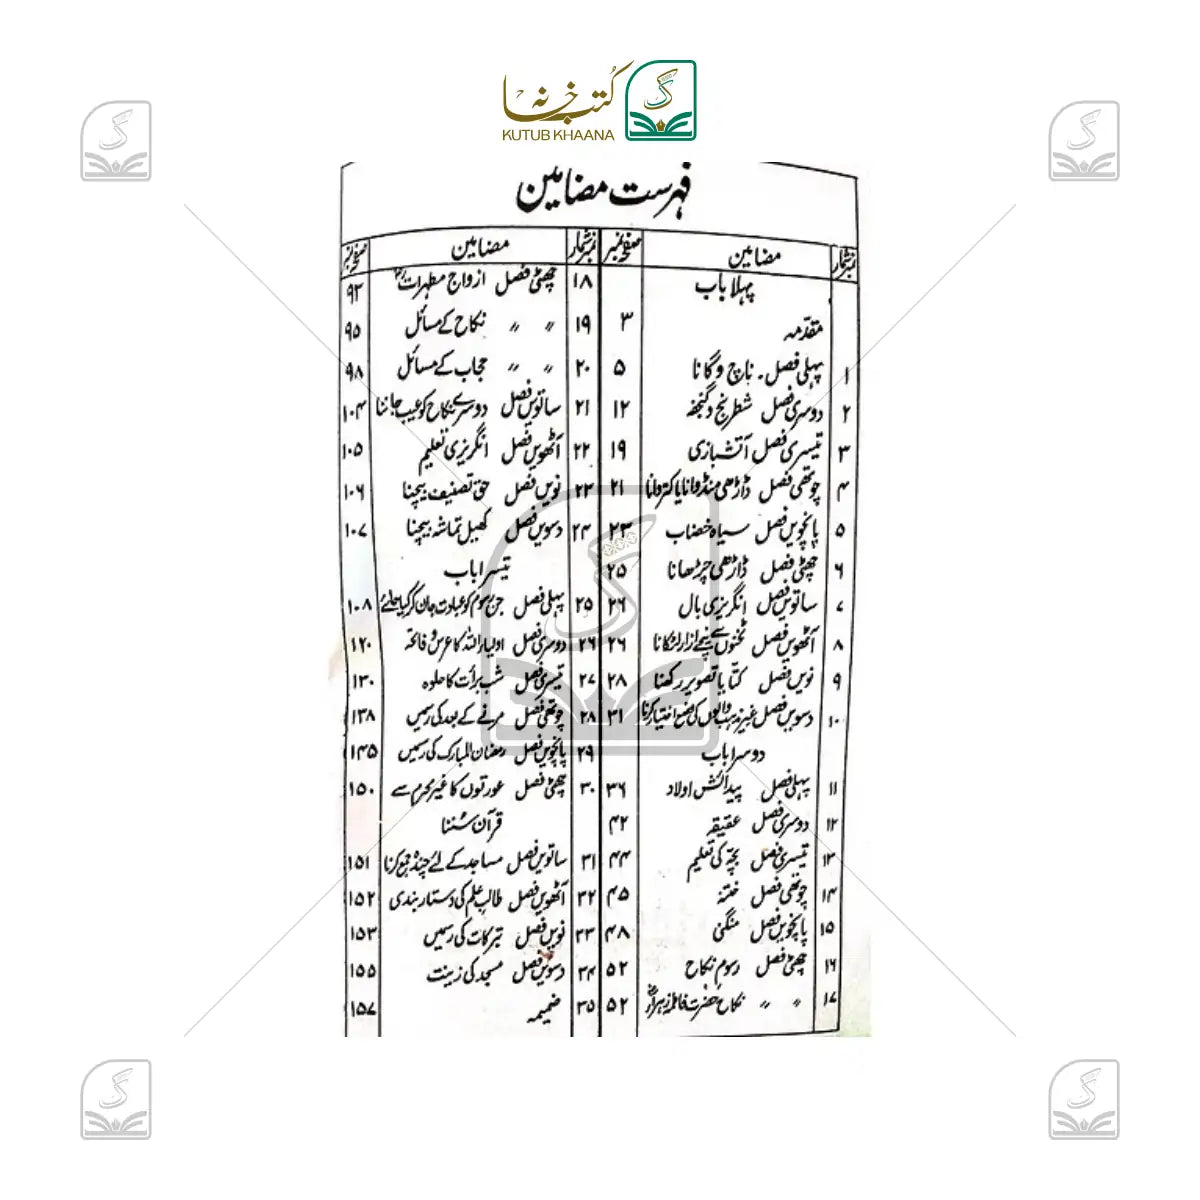 کتب خانہ
KUTUB KHAANA
فہرست مضامین
نمبر شمار مضامین صفحہ نمبر
پہلا باب
مقدمہ ۳
۱ پہلی فصل۔ ناچ و گانا ۵
۲ دوسری فصل شطرنج و گنجفہ ۱۲
۳ تیسری فصل آتشبازی ۱۹
۴ چوتھی فصل ڈاڑھی منڈوانا یا کتروانا ۲۱
۵ پانچویں فصل سیاہ خضاب ۲۳
۶ چھٹی فصل ڈاڑھی چڑھانا ۲۵
۷ ساتویں فصل انگریزی بال ۲۶
۸ آٹھویں فصل ٹخنوں سے نیچے ازار لٹکانا ۲۶
۹ نویں فصل کتا یا تصویر رکھنا ۲۸
۱۰ دسویں فصل غیر مذہب والوں کی وضع اختیار کرنا ۳۱
دوسرا باب
۱۱ پہلی فصل پیدائش اولاد ۳۶
۱۲ دوسری فصل عقیقہ ۴۲
۱۳ تیسری فصل بچہ کی تعلیم ۴۴
۱۴ چوتھی فصل ختنہ ۴۵
۱۵ پانچویں فصل منگنی ۴۸
۱۶ چھٹی فصل رسوم نکاح ۵۲
۱۷ " " نکاح حضرت فاطمہ زہرا ۵۲
نمبر شمار مضامین صفحہ نمبر
۱۸ چھٹی فصل ازواج مطہرات ۹۳
۱۹ " " نکاح کے مسائل ۹۵
۲۰ " " حجاب کے مسائل ۹۸
۲۱ ساتویں فصل دوسرے نکاح کو عیب جاننا ۱۰۴
۲۲ آٹھویں فصل انگریزی تعلیم ۱۰۵
۲۳ نویں فصل حق تصنیف بیچنا ۱۰۶
۲۴ دسویں فصل کھیل تماشہ بیچنا ۱۰۷
تیسرا باب
۲۵ پہلی فصل جن رسوم کو عبادت جان کر کیا جائے ۱۰۸
۲۶ دوسری فصل اولیاء اللہ کا عرس و فاتحہ ۱۲۰
۲۷ تیسری فصل شب برأت کا حلوہ ۱۳۰
۲۸ چوتھی فصل مرنے کے بعد کی رسمیں ۱۳۸
۲۹ پانچویں فصل رمضان المبارک کی رسمیں ۱۴۵
۳۰ چھٹی فصل عورتوں کا غیر محرم سے ۱۵۰
قرآن سننا
۳۱ ساتویں فصل مساجد کے لئے چندہ جمع کرنا ۱۵۱
۳۲ آٹھویں فصل طالب علم کی دستار بندی ۱۵۲
۳۳ نویں فصل تبرکات کی رسمیں ۱۵۳
۳۴ دسویں فصل مسجد کی زینت ۱۵۵
۳۵ ضمیمہ ۱۵۷